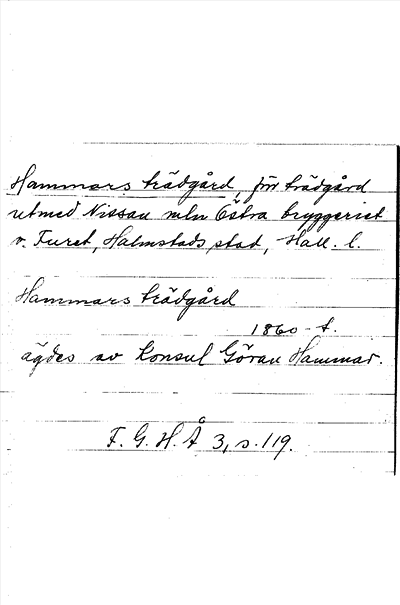 Hammars trädgård, förr trädgård
utmed Nissan mln Östra bryggeriet
o. Furet, Halmstads stad, Hall. l.
Hammars trädgård
1860-t.
ägdes av konsul Göran Hammar.
F. G. H. Å 3, s. 119.